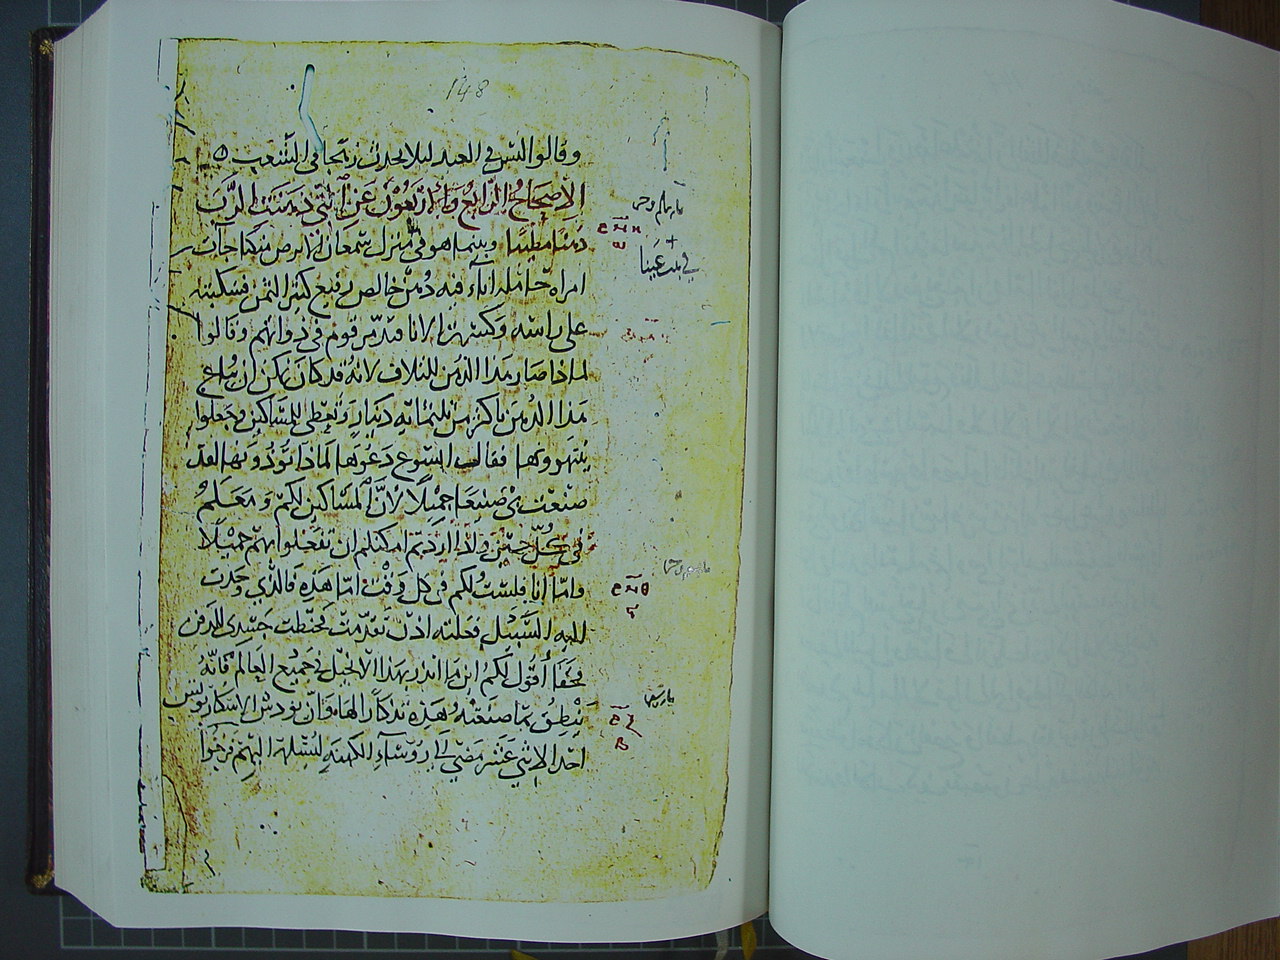 148
وقالوا ليس في العيد ليلا يحدث رتجا في الشعب
الاصحاح الرابع والاربعون عن التي دهنت الرب
دهنا مطيبا وبينما هو في منزل سمعان الابرص متكيا جات
امراه حامله اناء فيه دهن خالص رفيع كثير الثمن فسكبته
على راسه وكسرت الانا فتذمر قوم في ذواتهم وقالوا
لماذا صار هذا الدهن للتلاف لانه قد كان يمكن ان يباع
هذا الدهن باكثر من ثلثمائه دينار ويعطى للمساكين وجعلوا
ينتهرونها فقال ايسوع دعوها لماذا توذونها لقد
صنعت بي صنيعا جميلا لان المساكين لكم ومعكم
في كل حين واذا اردتم امكنكم ان تفعلوا بهم جميلا
واما انا فلست لكم في كل وقت اما هذه فالذي وجدت
اليه السبيل فعلته اذ تقدمت فحنطت جسدي للدفن
فحقا اقول لكم اينما انذر بهذا الانجيل في جميع العالم فانه
ينطق بما صنعته هذه تذكارا لها وان يودس الاسكاريوتس
احد الاثني عشر مضى الى روساء الكهنه ليسلمه اليهم فرحوا